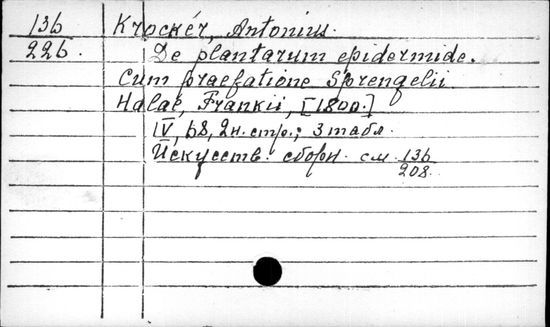 13б Krockér, Antonius.
22б. De plantarum epidermide.
Cum praefatione Sprengelii.
Halae, Frankii, [1800.]
IV, 68, 2н. стр.; 3 табл.
Искусств. сборн. см. 13б
208.